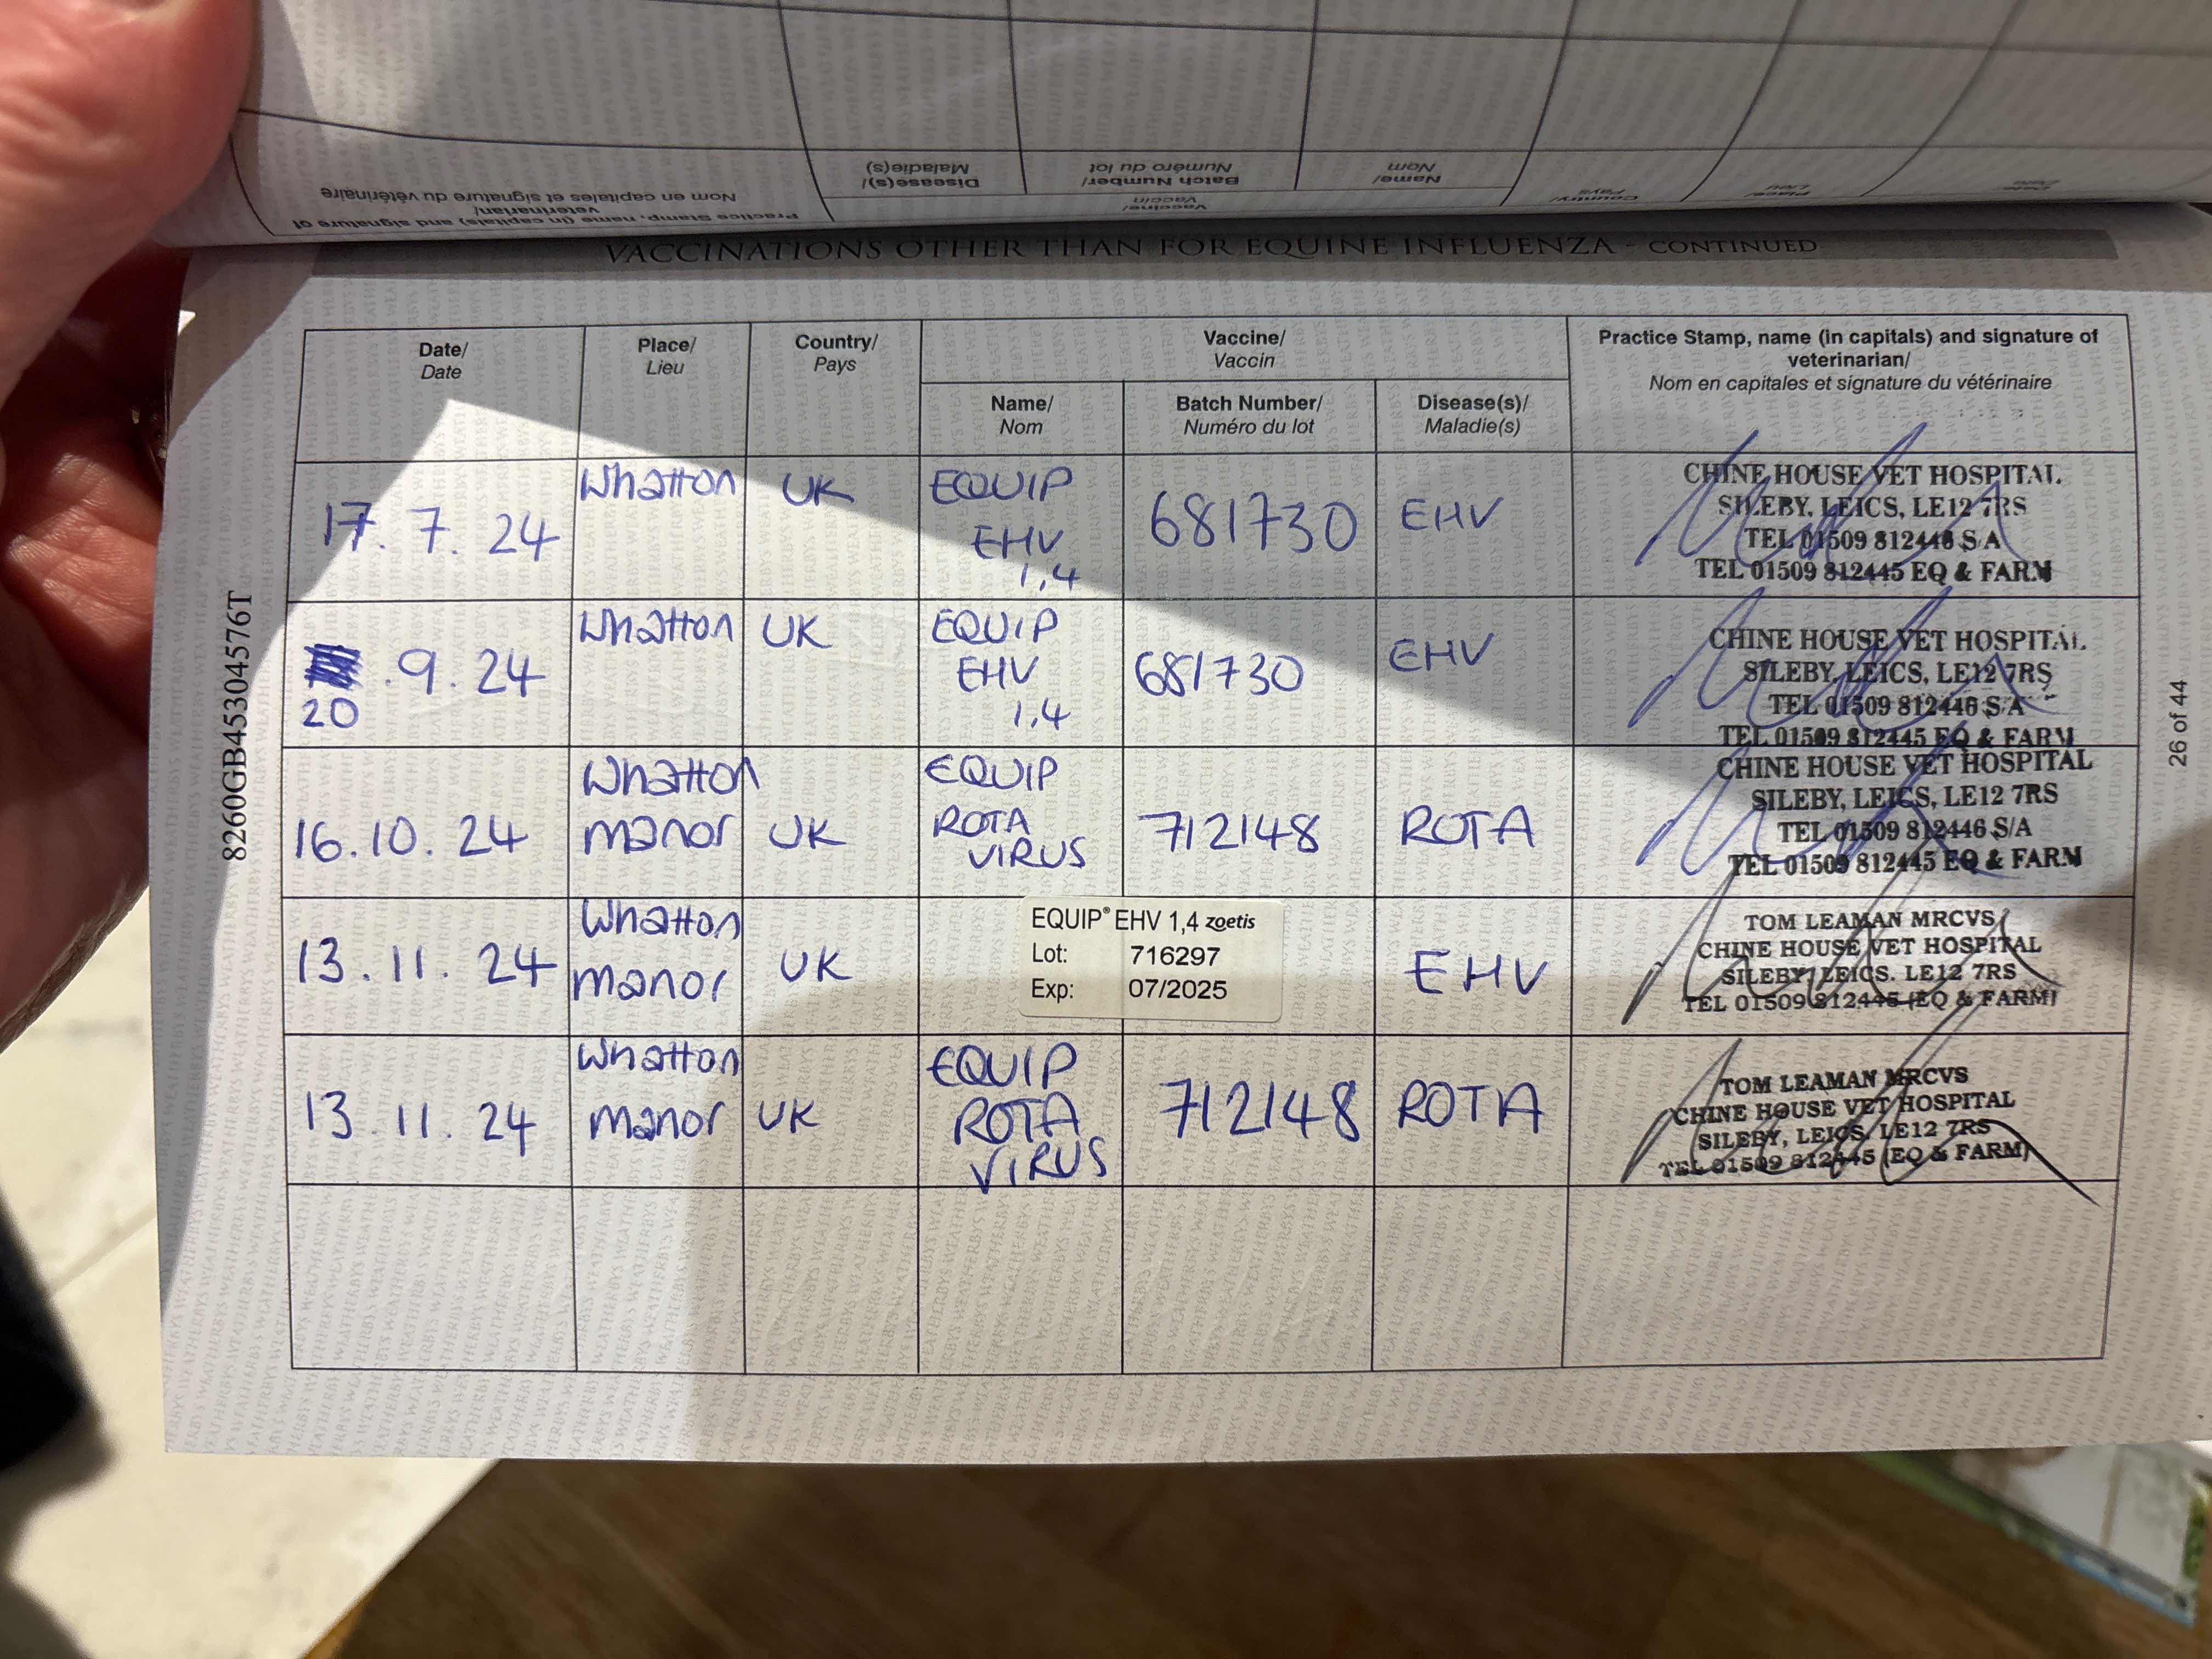 Practice Stamp, name (in capitals) and signature of
veterinarian/
Nom en capitales et signature du vétérinaire
Vaccine/
Vaccin
Disease(s)/
Maladie(s)
Batch Number/
Numéro du lot
Name/
Nom
Country/
Pays
Place/
Lieu
Date/
Date
VACCINATIONS OTHER THAN FOR EQUINE INFLUENZA - CONTINUED
Date/
Date
Place/
Lieu
Country/
Pays
Vaccine/
Vaccin
Name/
Nom
Batch Number/
Numéro du lot
Disease(s)/
Maladie(s)
Practice Stamp, name (in capitals) and signature of
veterinarian/
Nom en capitales et signature du vétérinaire
17.7.24
Whatton
UK
EQUIP
EHV
1,4
681730
EHV
CHINE HOUSE VET HOSPITAL
SILEBY, LEICS, LE12 7RS
TEL 01509 812446 S A
TEL 01509 812445 EQ & FARM
.9.24
20
Whatton
UK
EQUIP
EHV
1,4
681730
EHV
CHINE HOUSE VET HOSPITAL
SILEBY, LEICS, LE12 7RS
TEL 01509 812446 S A
TEL 01509 812445 EQ & FARM
16.10.24
Whatton
manor
UK
EQUIP
ROTA
VIRUS
712148
ROTA
CHINE HOUSE VET HOSPITAL
SILEBY, LEICS, LE12 7RS
TEL 01509 812446 S/A
TEL 01509 812445 EQ & FARM
13.11.24
Whatton
manor
UK
EQUIP® EHV 1,4 zoetis
Lot: 716297
Exp: 07/2025
EHV
TOM LEAMAN MRCVS
CHINE HOUSE VET HOSPITAL
SILEBY, LEICS. LE12 7RS
TEL 01509 812445 (EQ & FARM)
13.11.24
Whatton
manor
UK
EQUIP
ROTA
VIRUS
712148
ROTA
TOM LEAMAN MRCVS
CHINE HOUSE VET HOSPITAL
SILEBY, LEICS, LE12 7RS
TEL 01509 812445 (EQ & FARM)
8260GB45304576T
26 of 44